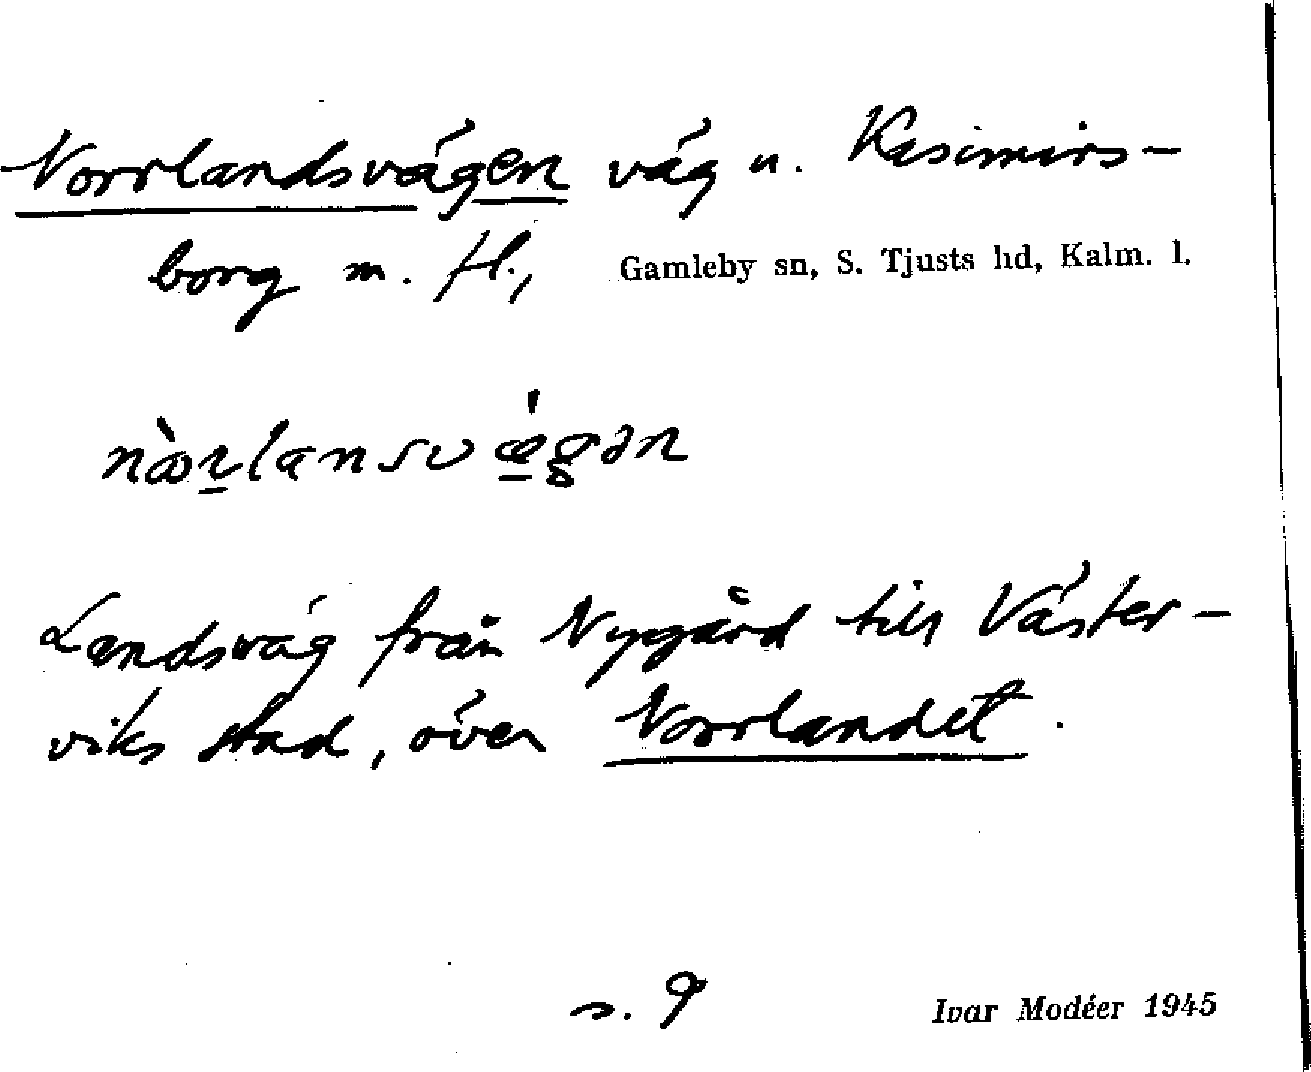 Norrlandsvägen väg u. Kasimirs-
borg m. fl., Gamleby sn, S. Tjusts hd, Kalm. l.
nò̱rlansvǽ̱gən
Landsväg från Nygård till Väster-
viks stad, över Norrlandet.
s. 9 Ivar Modéer 1945